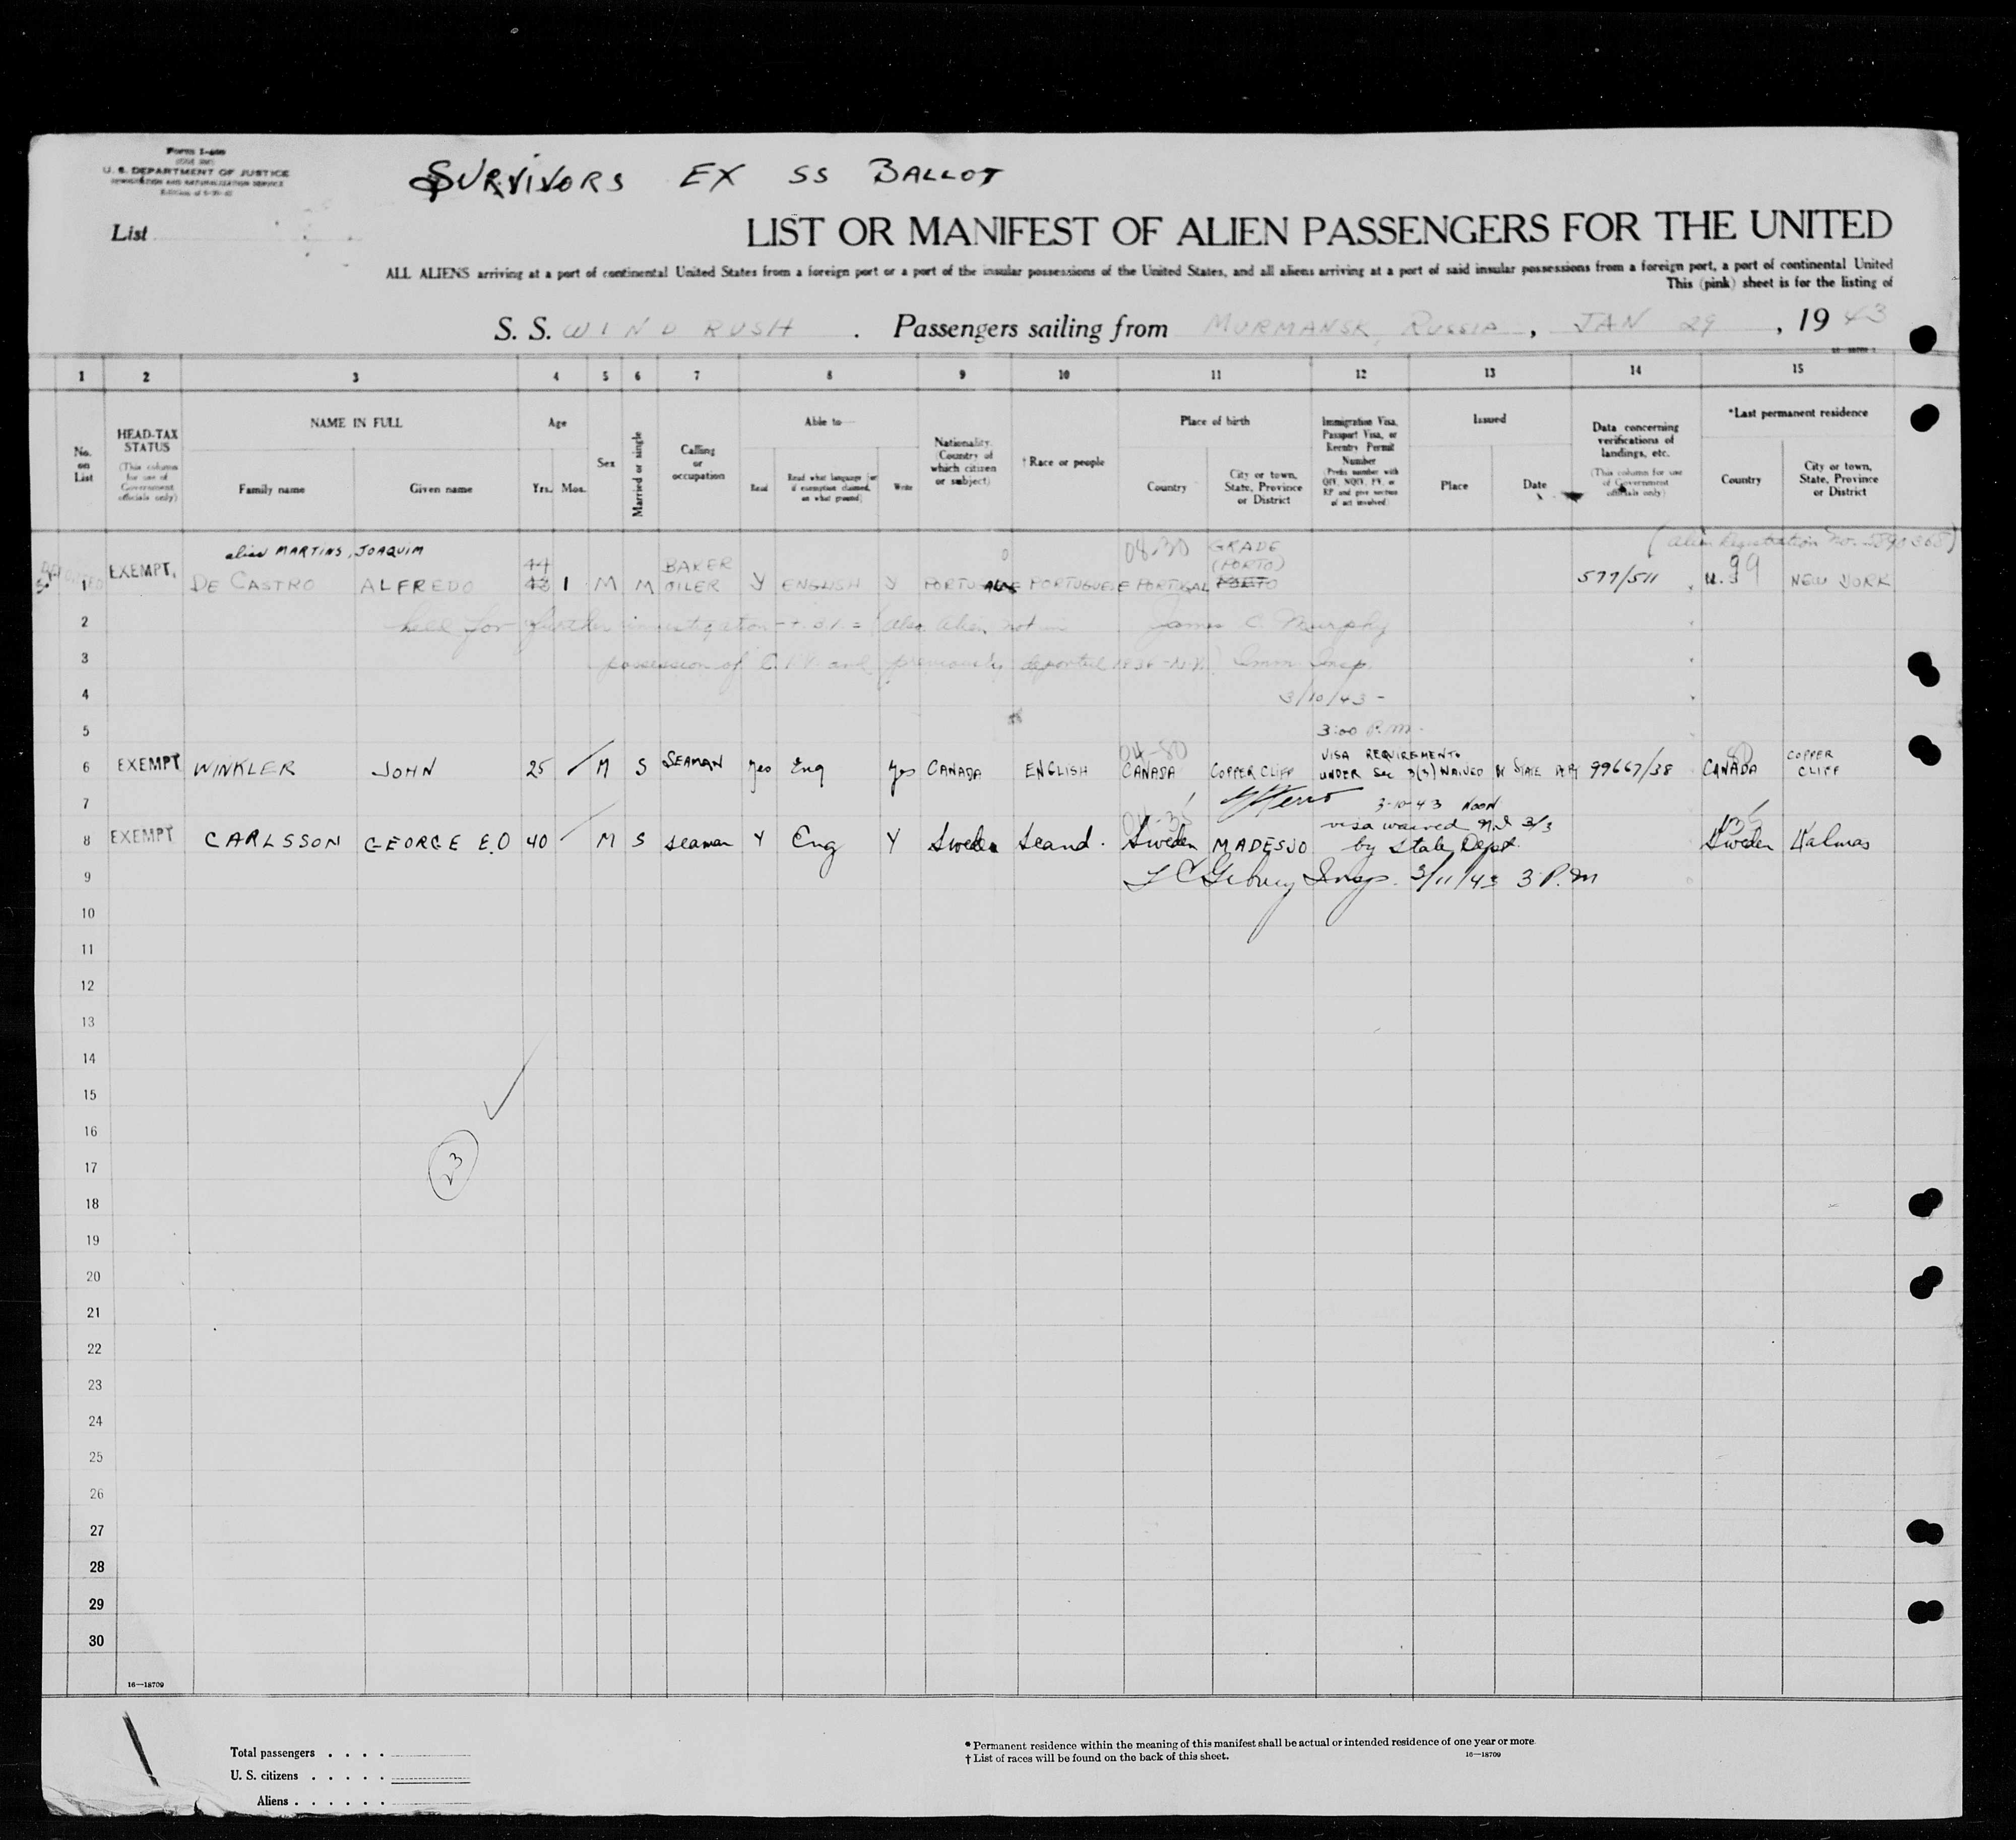 Form I-400
U. S. DEPARTMENT OF JUSTICE
IMMIGRATION AND NATURALIZATION SERVICE
SURVIVORS EX SS BALLOT
List
LIST OR MANIFEST OF ALIEN PASSENGERS FOR THE UNITED
ALL ALIENS arriving at a port of continental United States from a foreign port or a port of the insular possessions of the United States, and all aliens arriving at a port of said insular possessions from a foreign port, a port of continental United
This (pink) sheet is for the listing of
S. S. WIND RUSH . Passengers sailing from MURMANSK, RUSSIA, JAN 29, 1943
1 2 3 4 5 6 7 8 9 10 11 12 13 14 15
No. on List
HEAD-TAX STATUS (This column for use of Government officials only)
NAME IN FULL
Family name Given name
Age
Yrs. Mos.
Sex
Married or single
Calling or occupation
Able to—
Read
Read what language [or if exemption claimed, on what ground]
Write
Nationality. (Country of which citizen or subject)
† Race or people
Place of birth
Country
City or town, State, Province or District
Immigration Visa, Passport Visa, or Reentry Permit Number (Prefix number with QIV, NQIV, PV, or RP and give section of act involved)
Issued
Place Date
Data concerning verifications of landings, etc. (This column for use of Government officials only)
*Last permanent residence
Country
City or town, State, Province or District
alias MARTINS, JOAQUIM 44 BAKER 0830 GRADE (PORTO) (alien Registration No.
1 EXEMPT. DE CASTRO ALFREDO 43 1 M M OILER Y ENGLISH Y PORTUGAL PORTUGUESE PORTUGAL PORTO 577/511 U.S 99 NEW YORK
2 held for further investigation - (also alien not in James C. Murphy
3 possession of and previously deported Imm Insp.
4 3/10/43 -
5 3:00 P.m.
6 EXEMPT WINKLER JOHN 25 M S SEAMAN Yes Eng Yes CANADA ENGLISH 04-80 CANADA COPPER CLIFF VISA REQUIREMENTS UNDER Sec 3(3) WAIVED BY STATE DEPT 99667/38 CANADA COPPER CLIFF
7 3-10-43 NOON
8 EXEMPT CARLSSON GEORGE E.O 40 M S seaman Y Eng Y Sweden Scand. Sweden MADESJO visa waived 3/3 by State Dept. Sweden Kalmar
9 Insp. 3/11/43 3 P.M
10
11
12
13
14
15
16
17
18
19
20
21
22
23
24
25
26
27
28
29
30
23
16—18709
Total passengers . . . .
U. S. citizens . . . . .
Aliens . . . . . .
* Permanent residence within the meaning of this manifest shall be actual or intended residence of one year or more.
† List of races will be found on the back of this sheet.
16—18709